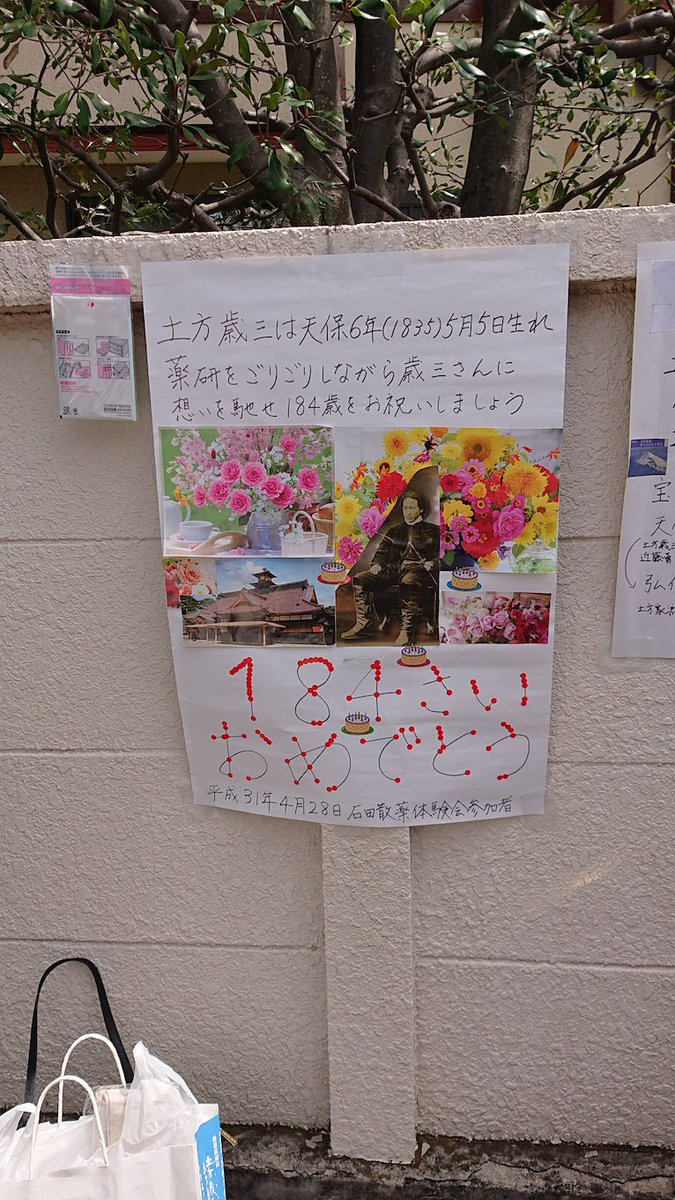 土方歳三は天保6年(1835)5月5日生れ
薬研をごりごりしながら歳三さんに
想いを馳せ184歳をお祝いしましょう
184さい
おめでとう
平成31年4月28日 石田散薬体験会参加者
宝
天
土方歳三
近藤勇
弘化
土方家